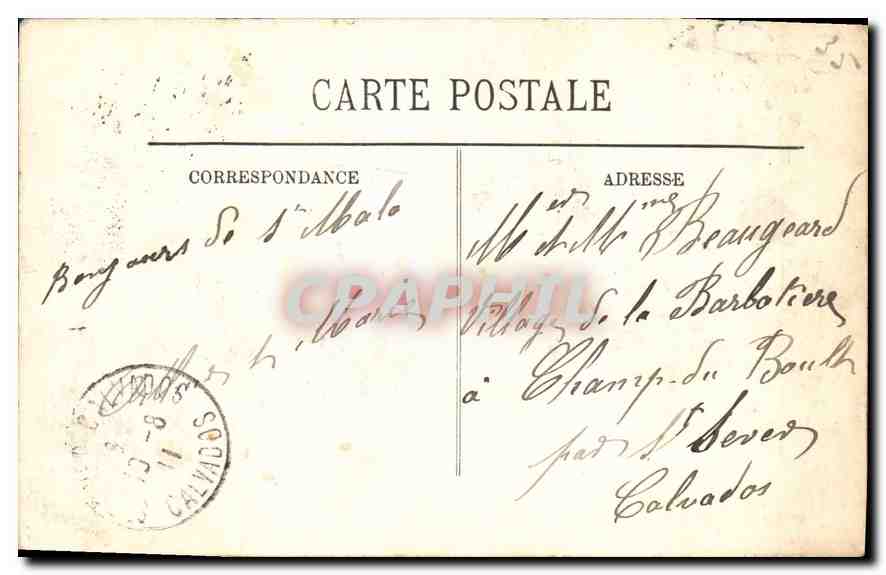 CARTE POSTALE
CORRESPONDANCE
ADRESSE
Bonjours de St Malo
Marie
Mer et Mme Beaugeard
Village de la Barbotiere
à Champ-du Boult
par St Sever
Calvados
CALVADOS
10 -8
11
CPAPHIL